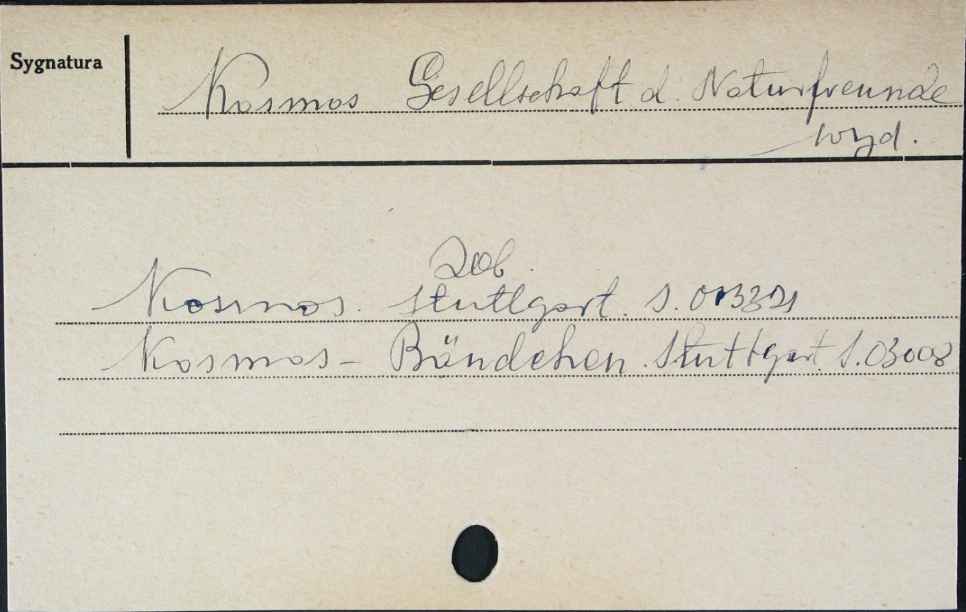 Sygnatura
Kosmos Gesellschaft d. Naturfreunde
wyd.
Zob.
Kosmos. Stuttgart. S.013321
Kosmos - Bändchen. Stuttgart. S.03008